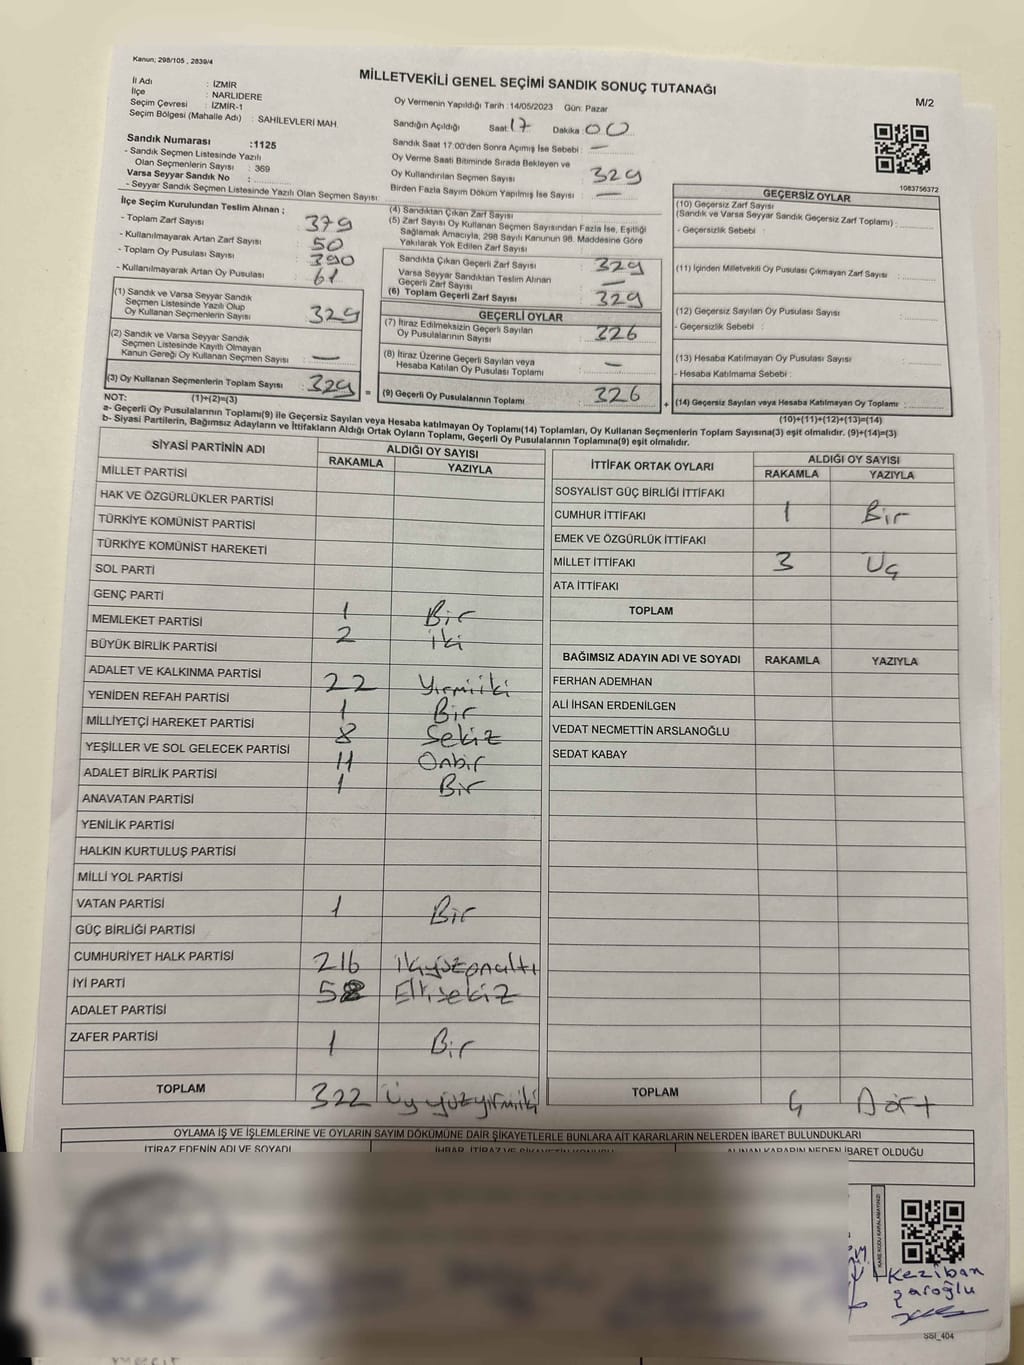 Kanun; 298/105 , 2839/4
MİLLETVEKİLİ GENEL SEÇİMİ SANDIK SONUÇ TUTANAĞI
M/2
İl Adı : İZMİR
İlçe : NARLIDERE
Seçim Çevresi : İZMİR-1
Seçim Bölgesi (Mahalle Adı) : SAHİLEVLERİ MAH.
Sandık Numarası :1125
- Sandık Seçmen Listesinde Yazılı
Olan Seçmenlerin Sayısı : 369
Varsa Seyyar Sandık No :
- Seyyar Sandık Seçmen Listesinde Yazılı Olan Seçmen Sayısı:
Oy Vermenin Yapıldığı Tarih : 14/05/2023 Gün: Pazar
Sandığın Açıldığı Saat: 17 Dakika 00
Sandık Saat 17.00'den Sonra Açımış İse Sebebi : —
Oy Verme Saati Bitiminde Sırada Bekleyen ve
Oy Kullandırılan Seçmen Sayısı 329
Birden Fazla Sayım Döküm Yapılmış İse Sayısı —
1083756372
İlçe Seçim Kurulundan Teslim Alınan ;
- Toplam Zarf Sayısı 379
- Kullanılmayarak Artan Zarf Sayısı 50
- Toplam Oy Pusulası Sayısı 390
- Kullanılmayarak Artan Oy Pusulası 61
(1) Sandık ve Varsa Seyyar Sandık
Seçmen Listesinde Yazılı Olup
Oy Kullanan Seçmenlerin Sayısı 329
(2) Sandık ve Varsa Seyyar Sandık
Seçmen Listesinde Kayıtlı Olmayan
Kanun Gereği Oy Kullanan Seçmen Sayısı —
(3) Oy Kullanan Seçmenlerin Toplam Sayısı 329 =
(4) Sandıktan Çıkan Zarf Sayısı
(5) Zarf Sayısı Oy Kullanan Seçmen Sayısından Fazla İse, Eşitliği
Sağlamak Amacıyla, 298 Sayılı Kanunun 98. Maddesine Göre
Yakılarak Yok Edilen Zarf Sayısı
Sandıkta Çıkan Geçerli Zarf Sayısı 329
Varsa Seyyar Sandıktan Teslim Alınan
Geçerli Zarf Sayısı —
(6) Toplam Geçerli Zarf Sayısı 329
GEÇERLİ OYLAR
(7) İtiraz Edilmeksizin Geçerli Sayılan
Oy Pusulalarının Sayısı 326
(8) İtiraz Üzerine Geçerli Sayılan veya
Hesaba Katılan Oy Pusulası Toplamı —
(9) Geçerli Oy Pusulalarının Toplamı 326 +
GEÇERSİZ OYLAR
(10) Geçersiz Zarf Sayısı
(Sandık ve Varsa Seyyar Sandık Geçersiz Zarf Toplamı) :
- Geçersizlik Sebebi :
(11) İçinden Milletvekili Oy Pusulası Çıkmayan Zarf Sayısı :
(12) Geçersiz Sayılan Oy Pusulası Sayısı :
- Geçersizlik Sebebi :
(13) Hesaba Katılmayan Oy Pusulası Sayısı :
- Hesaba Katılmama Sebebi :
(14) Geçersiz Sayılan veya Hesaba Katılmayan Oy Toplamı :
(10)+(11)+(12)+(13)=(14)
NOT: (1)+(2)=(3)
a- Geçerli Oy Pusulalarının Toplamı(9) ile Geçersiz Sayılan veya Hesaba katılmayan Oy Toplamı(14) Toplamları, Oy Kullanan Seçmenlerin Toplam Sayısına(3) eşit olmalıdır. (9)+(14)=(3)
b- Siyasi Partilerin, Bağımsız Adayların ve İttifakların Aldığı Ortak Oyların Toplamı, Geçerli Oy Pusulalarının Toplamına(9) eşit olmalıdır.
SİYASİ PARTİNİN ADI ALDIĞI OY SAYISI
RAKAMLA YAZIYLA
MİLLET PARTİSİ
HAK VE ÖZGÜRLÜKLER PARTİSİ
TÜRKİYE KOMÜNİST PARTİSİ
TÜRKİYE KOMÜNİST HAREKETİ
SOL PARTİ
GENÇ PARTİ
MEMLEKET PARTİSİ 1 Bir
BÜYÜK BİRLİK PARTİSİ 2 iki
ADALET VE KALKINMA PARTİSİ 22 Yirmiiki
YENİDEN REFAH PARTİSİ 1 Bir
MİLLİYETÇİ HAREKET PARTİSİ 8 Sekiz
YEŞİLLER VE SOL GELECEK PARTİSİ 11 Onbir
ADALET BİRLİK PARTİSİ 1 Bir
ANAVATAN PARTİSİ
YENİLİK PARTİSİ
HALKIN KURTULUŞ PARTİSİ
MİLLİ YOL PARTİSİ
VATAN PARTİSİ 1 Bir
GÜÇ BİRLİĞİ PARTİSİ
CUMHURİYET HALK PARTİSİ 216 ikiyüzonaltı
İYİ PARTİ 58 Ellisekiz
ADALET PARTİSİ
ZAFER PARTİSİ 1 Bir
TOPLAM 322 Üçyüzyirmiiki
İTTİFAK ORTAK OYLARI ALDIĞI OY SAYISI
RAKAMLA YAZIYLA
SOSYALİST GÜÇ BİRLİĞİ İTTİFAKI
CUMHUR İTTİFAKI 1 Bir
EMEK VE ÖZGÜRLÜK İTTİFAKI
MİLLET İTTİFAKI 3 Üç
ATA İTTİFAKI
TOPLAM
BAĞIMSIZ ADAYIN ADI VE SOYADI RAKAMLA YAZIYLA
FERHAN ADEMHAN
ALİ İHSAN ERDENİLGEN
VEDAT NECMETTİN ARSLANOĞLU
SEDAT KABAY
TOPLAM 4 Dört
OYLAMA İŞ VE İŞLEMLERİNE VE OYLARIN SAYIM DÖKÜMÜNE DAİR ŞİKAYETLERLE BUNLARA AİT KARARLARIN NELERDEN İBARET BULUNDUKLARI
İTİRAZ EDENİN ADI VE SOYADI İHBAR, İTİRAZ VE ŞİKAYETİN KONUSU ALINAN KARARIN NEDEN İBARET OLDUĞU
KARE KODU KARALAMAYINIZ!
Keziban
Şaroğlu
SSI_404